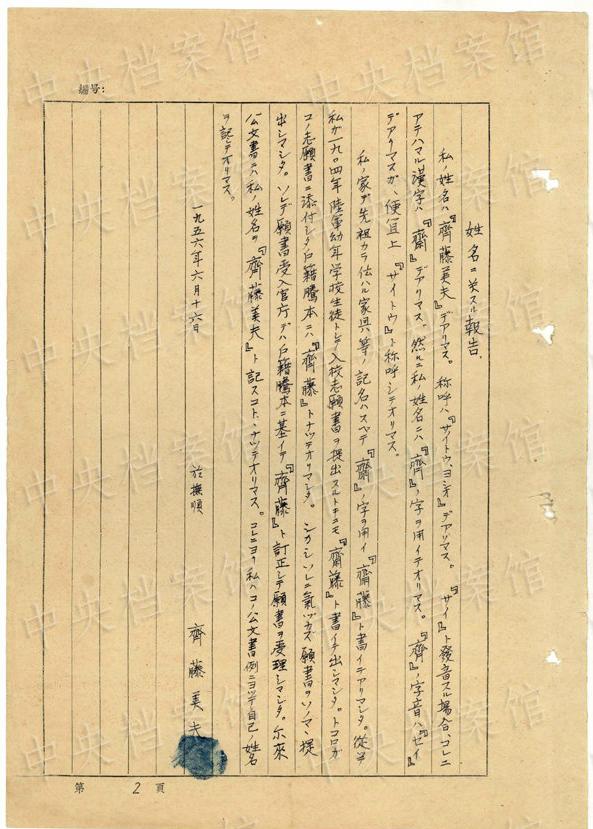 中央档案馆
編号:
姓名ニ关スル報告.
私ノ姓名ハ『齊藤美夫』デアリマス。称呼ハ『サイトウ、ヨシオ』デアリマス。『サイ』ト發音スル場合、コレニ
アテハマル漢字ハ『齋』デアリマス。然ルニ私ノ姓名ニハ『齊』ノ字ヲ用イテオリマス。『齊』ノ字音ハ『セイ』
デアリマスガ、便宜上『サイトウ』ト称呼シテオリマス。
私ノ家デ先祖カラ伝ハル家具等ノ記名ハスベテ『齋』ノ字ヲ用イ『齋藤』ト書イテアリマシタ。從ッテ
私ガ一九〇四年陸軍幼年学校生徒トシテ入校志願書ヲ提出スルトキニモ『齋藤』ト書イテ出シマシタ。トコロガ
コノ志願書ニ添付シタ戸籍騰本ニハ『齊藤』トナッテオリマシタ。シカシソレニ氣ヅカズ願書ヲソノママ提
出シマシタ。ソレデ願書受入官庁デハ戸籍騰本ニ基イテ『齊藤』ト訂正シテ願書ヲ受理シマシタ。尓來
公文書ニハ私ノ姓名ヲ『齊藤美夫』ト記スコトヽナッテオリマス。コレニヨリ私ハコノ公文書例ニヨッテ自己ノ姓名
ヲ記シテオリマス。
一九五六年六月十六日
於撫順
齊藤美夫
第 2 頁